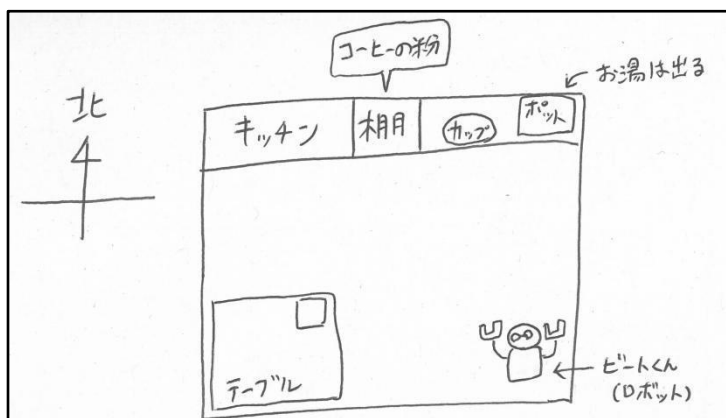 コーヒーの粉
お湯は出る
北
キッチン
棚
カップ
ポット
テーブル
ビートくん
(ロボット)